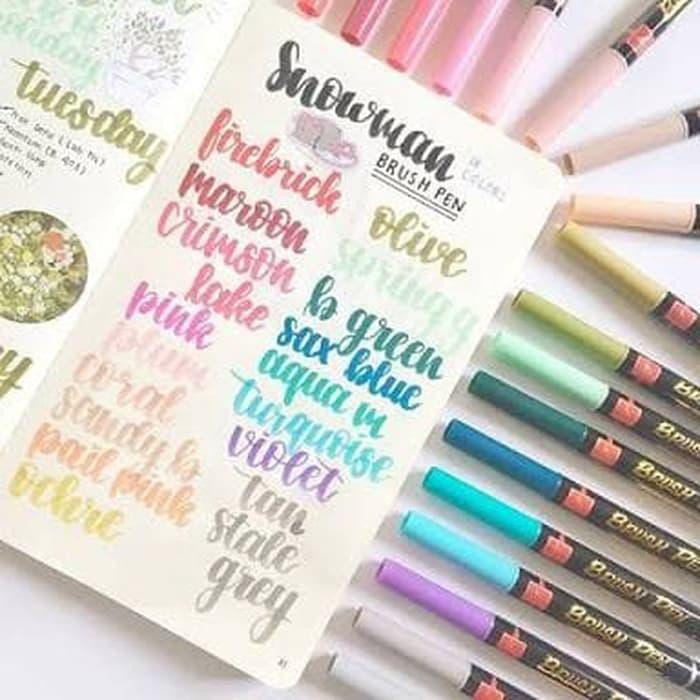 tuesday
Snowman
BRUSH PEN
18 COLORS
firebrick
maroon
crimson
lake
pink
plum
coral
sandy b
pail pink
ochre
olive
spring g
b green
sax blue
aqua m
turquoise
violet
tan
stale
grey
BRUSH PEN
BRUSH PEN
BRUSH PEN
BRUSH PEN